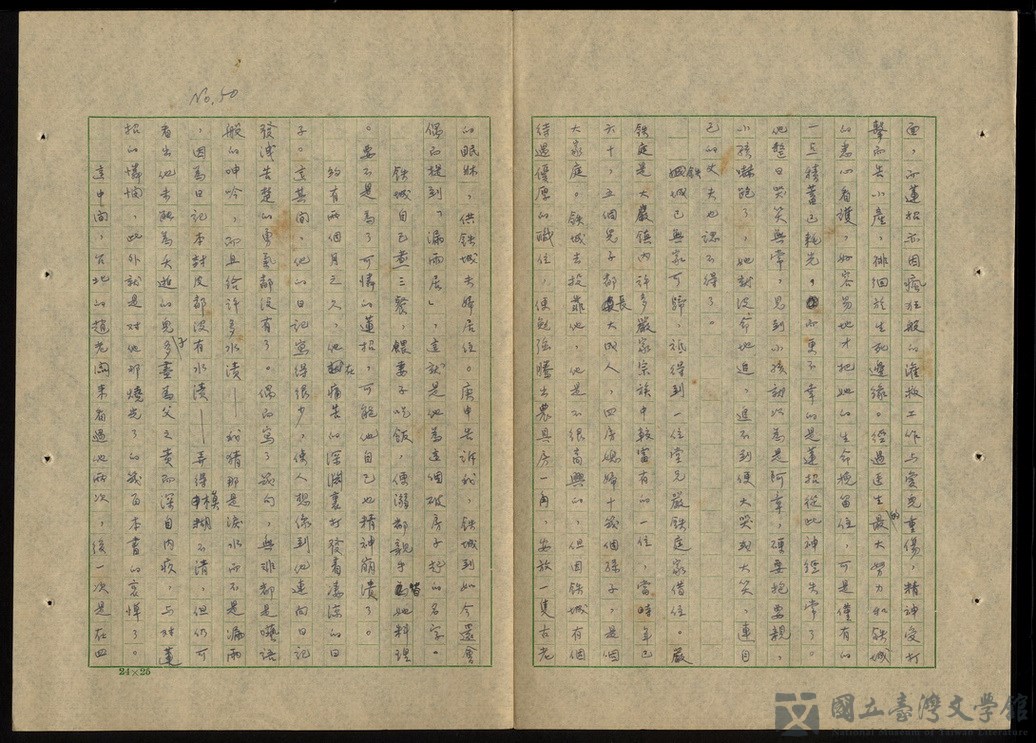 No. 50
面，而蓮招亦因瘋狂般的灌救工作与愛兒重傷，精神受打
擊而告小產，徘徊於生死邊緣。經過医生的最大努力和鉄城
的悉心看護，好容易地才把她的生命挽留住，可是僅有的
一点積蓄已耗光。而更不幸的是蓮招從此神經失常了。
他整日哭笑無常，見到小孩就以為是阿韋，硬要抱要親，
小孩嚇跑了，她就沒命地追，追不到便大哭或大笑，連自
己的丈夫也認不得了。
鉄城已無家可歸，祇得到一位堂兄嚴鉄庭家借住。嚴
鉄庭是大嚴鎮內許多嚴家宗族中較富有的一位，當時年已
六十，五個兒子都長大成人，四房媳婦十幾個孫子，是個
大家庭。鉄城去投靠他，他是不很高興的，但因鉄城有個
待遇優厚的職位，便勉強騰出農具房一角，安放一隻古老
的眠牀，供鉄城夫婦居住。庚申告訴我，鉄城到如今還會
偶而提到「漏雨居」，這就是他為這個破房子抒的名字。
鉄城自己煮三餐，餵妻子吃飯，便溺都親手替她料理
。要不是為了可憐的蓮招，可能他自己也精神崩潰了。
約有兩個月之久，他在痛苦的深淵裏打發着淒涼的日
子。這其間，他的日記寫得很少，使人想像到他連向日記
發洩苦楚的勇氣都沒有了。偶而寫了幾句，無非都是囈語
般的呻吟，而且給許多水漬——我猜那是淚水而不是漏雨
，因為日記本封皮都沒有水漬——弄得模糊不清，但仍可
看出他未能為夭逝的兒子多盡為父之責而深自內疚，与對蓮
招的憐惜，此外就是對他那燒光了的幾百本書的哀悼了。
這中間，台北的趙光闓來看過他兩次，後一次是在四
24×25
國立臺灣文學館
National Museum of Taiwan Literature